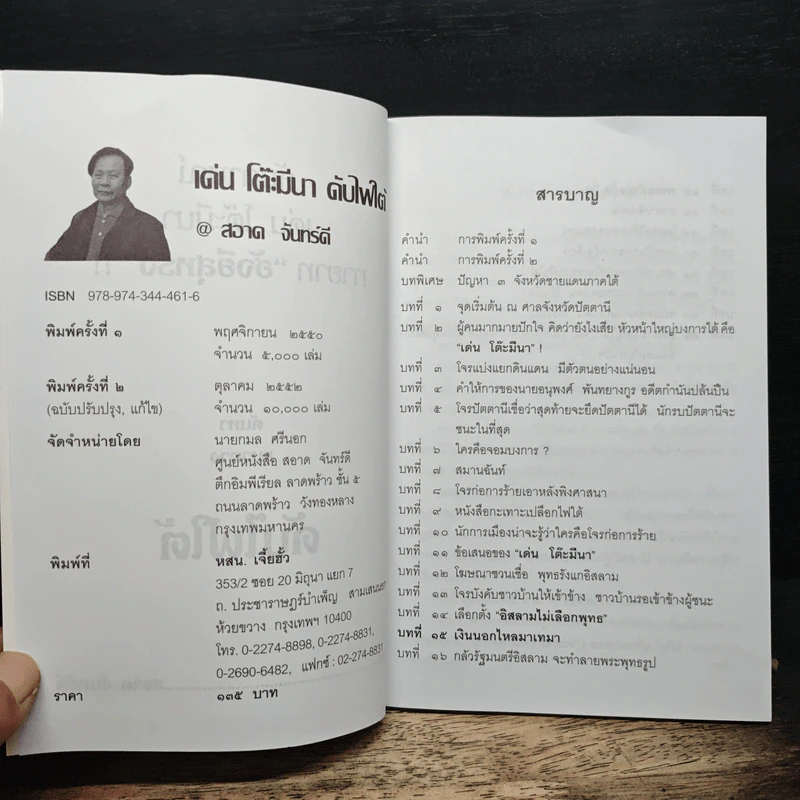 เด่น โต๊ะมีนา ดับไฟใต้
@ สอาด จันทร์ดี
ISBN 978-974-344-461-6
พิมพ์ครั้งที่ ๑ พฤศจิกายน ๒๕๕๐
จำนวน ๕,๐๐๐ เล่ม
พิมพ์ครั้งที่ ๒ ตุลาคม ๒๕๕๒
(ฉบับปรับปรุง, แก้ไข) จำนวน ๑๐,๐๐๐ เล่ม
จัดจำหน่ายโดย นายกมล ศรีนอก
ศูนย์หนังสือ สอาด จันทร์ดี
ตึกอิมพีเรียล ลาดพร้าว ชั้น ๕
ถนนลาดพร้าว วังทองหลาง
กรุงเทพมหานคร
พิมพ์ที่ หสน. เจี้ยฮั้ว
353/2 ซอย 20 มิถุนา แยก 7
ถ. ประชาราษฎร์บำเพ็ญ สามเสนนอก
ห้วยขวาง กรุงเทพฯ 10400
โทร. 0-2274-8898, 0-2274-8831,
0-2690-6482, แฟกซ์ : 02-274-8831
ราคา ๑๓๕ บาท
สารบาญ
คำนำ การพิมพ์ครั้งที่ ๑
คำนำ การพิมพ์ครั้งที่ ๒
บทพิเศษ ปัญหา ๓ จังหวัดชายแดนภาคใต้
บทที่ ๑ จุดเริ่มต้น ณ ศาลจังหวัดปัตตานี
บทที่ ๒ ผู้คนมากมายปักใจ คิดว่ายังไงเสีย หัวหน้าใหญ่บงการใต้ คือ
"เด่น โต๊ะมีนา" !
บทที่ ๓ โจรแบ่งแยกดินแดน มีตัวตนอย่างแน่นอน
บทที่ ๔ คำให้การของนายอนุพงศ์ พันทยางกูร อดีตกำนันปล้นปืน
บทที่ ๕ โจรปัตตานีเชื่อว่าสุดท้ายจะยึดปัตตานีได้ นักรบปัตตานีจะ
ชนะในที่สุด
บทที่ ๖ ใครคือจอมบงการ ?
บทที่ ๗ สมานฉันท์
บทที่ ๘ โจรก่อการร้ายเอาหลังพิงศาสนา
บทที่ ๙ หนังสือกะเทาะเปลือกไฟใต้
บทที่ ๑๐ นักการเมืองน่าจะรู้ว่าใครคือโจรก่อการร้าย
บทที่ ๑๑ ข้อเสนอของ "เด่น โต๊ะมีนา"
บทที่ ๑๒ โฆษณาชวนเชื่อ พุทธรังแกอิสลาม
บทที่ ๑๓ โจรบังคับชาวบ้านให้เข้าข้าง ชาวบ้านรอเข้าข้างผู้ชนะ
บทที่ ๑๔ เลือกตั้ง "อิสลามไม่เลือกพุทธ"
บทที่ ๑๕ เงินนอกไหลมาเทมา
บทที่ ๑๖ กลัวรัฐมนตรีอิสลาม จะทำลายพระพุทธรูป